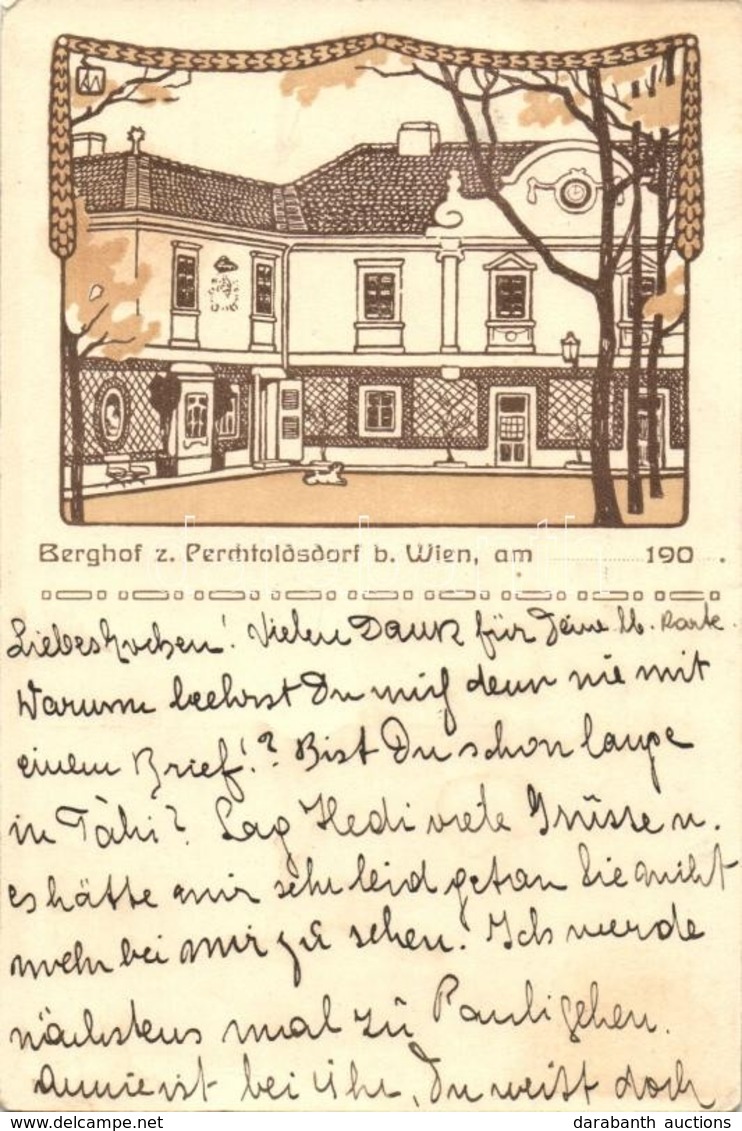 Berghof z. Perchtoldsdorf b. Wien, am 190 .
Vielen Dank für Deine lb. Karte.
Warum beehrst Du mich denn nie mit
einem Brief!? Bist Du schon lange
in Táhi? Sag Hedi viele Grüsse u.
es hätte mir sehr leid getan Sie nicht
mehr bei mir zu sehen. Ich werde
nächstens mal zu Pauli gehen.
Annie ist bei Ihr, Du weist doch
darabanth auctions